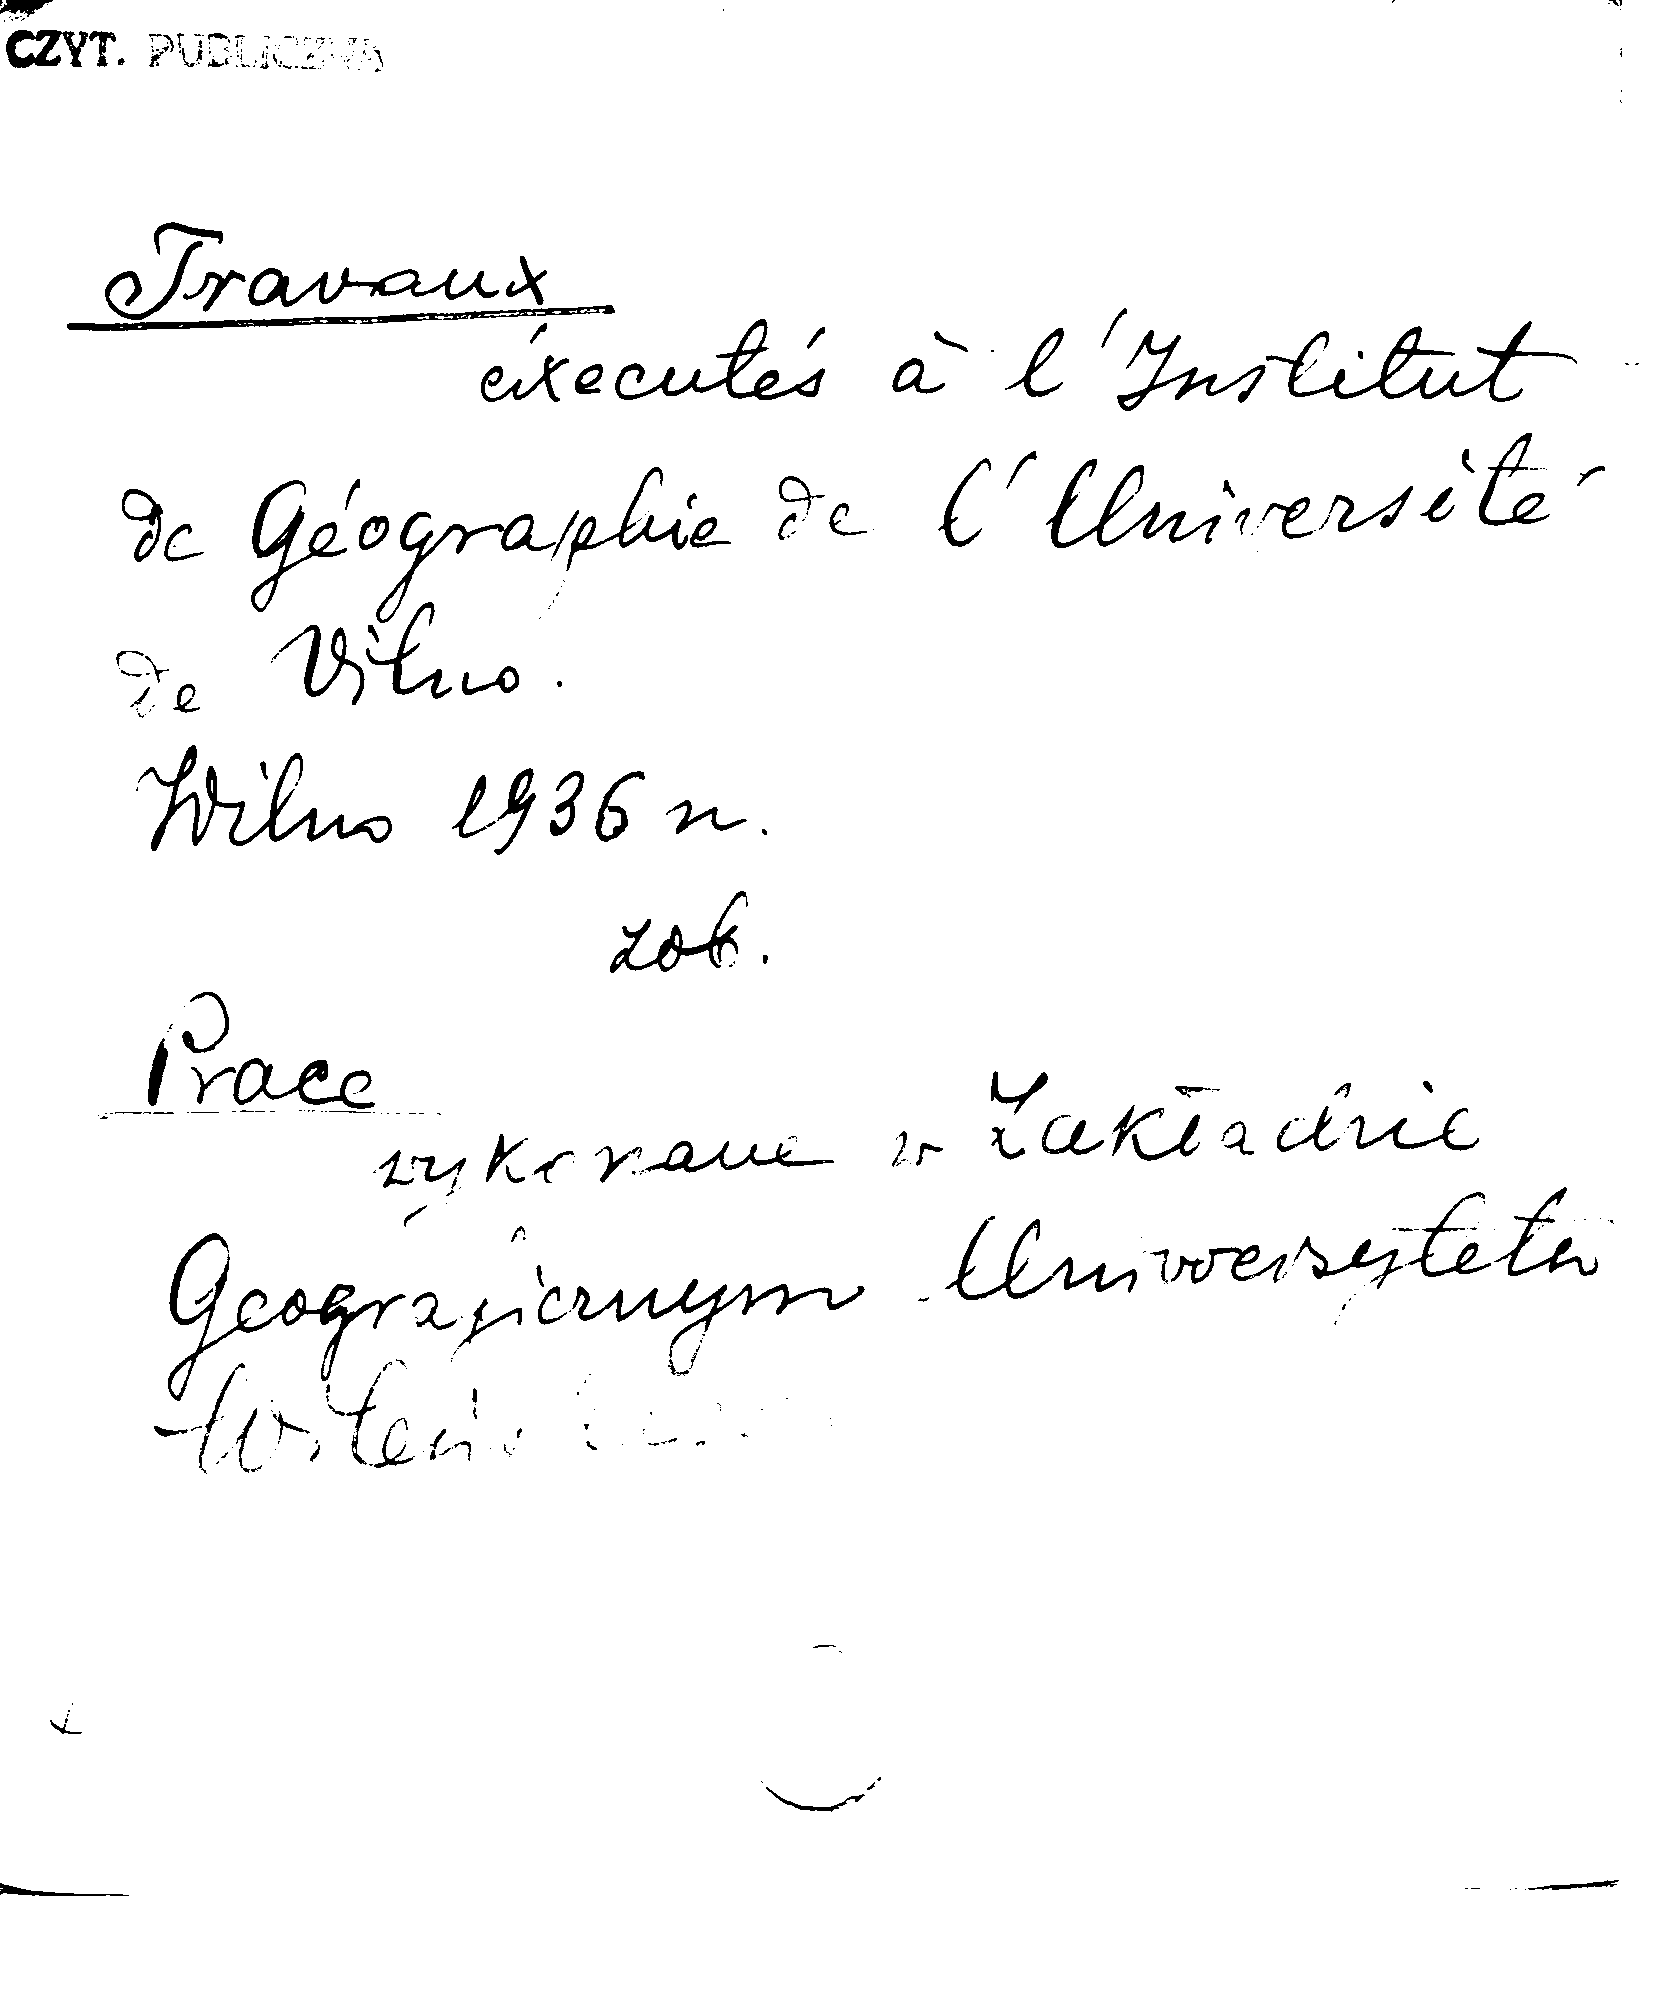 CZYT. PUBLICZNA
Travaux
éxecutés à l'Institut
de Géographie de l'Université
de Vilno.
Wilno 1936 r.
zob.
Prace
wykonane w Zakładzie
Geograficznym Uniwersytetu